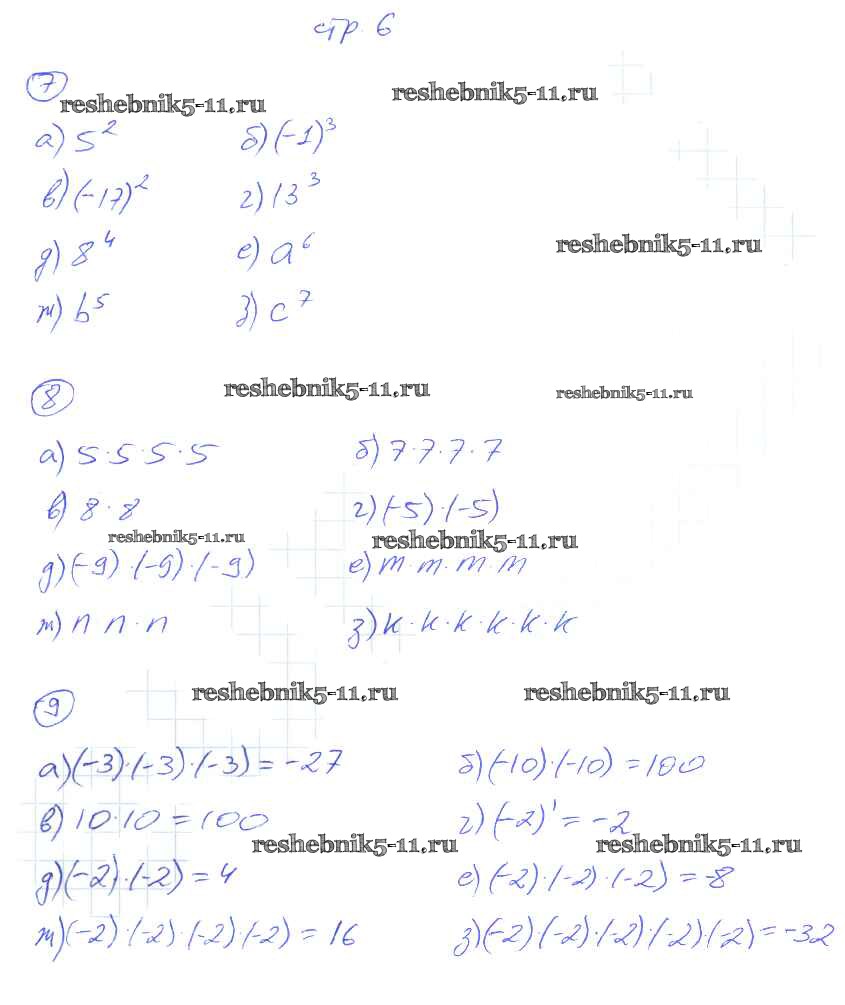 стр 6
7
reshebnik5-11.ru reshebnik5-11.ru
а) 5² б) (-1)³
в) (-17)² г) 13³
reshebnik5-11.ru
д) 8⁴ е) a⁶
ж) b⁵ з) c⁷
8 reshebnik5-11.ru reshebnik5-11.ru
а) 5·5·5·5 б) 7·7·7·7
в) 8·8 г) (-5)·(-5)
reshebnik5-11.ru reshebnik5-11.ru
д) (-9)·(-9)·(-9) е) m·m·m·m
ж) n n·n з) k·k·k·k·k·k
9 reshebnik5-11.ru reshebnik5-11.ru
а) (-3)·(-3)·(-3) = -27 б) (-10)·(-10) = 100
в) 10·10 = 100 г) (-2)¹ = -2
reshebnik5-11.ru reshebnik5-11.ru
д) (-2)·(-2) = 4 е) (-2)·(-2)·(-2) = -8
ж) (-2)·(-2)·(-2)·(-2) = 16 з) (-2)·(-2)·(-2)·(-2)·(-2) = -32